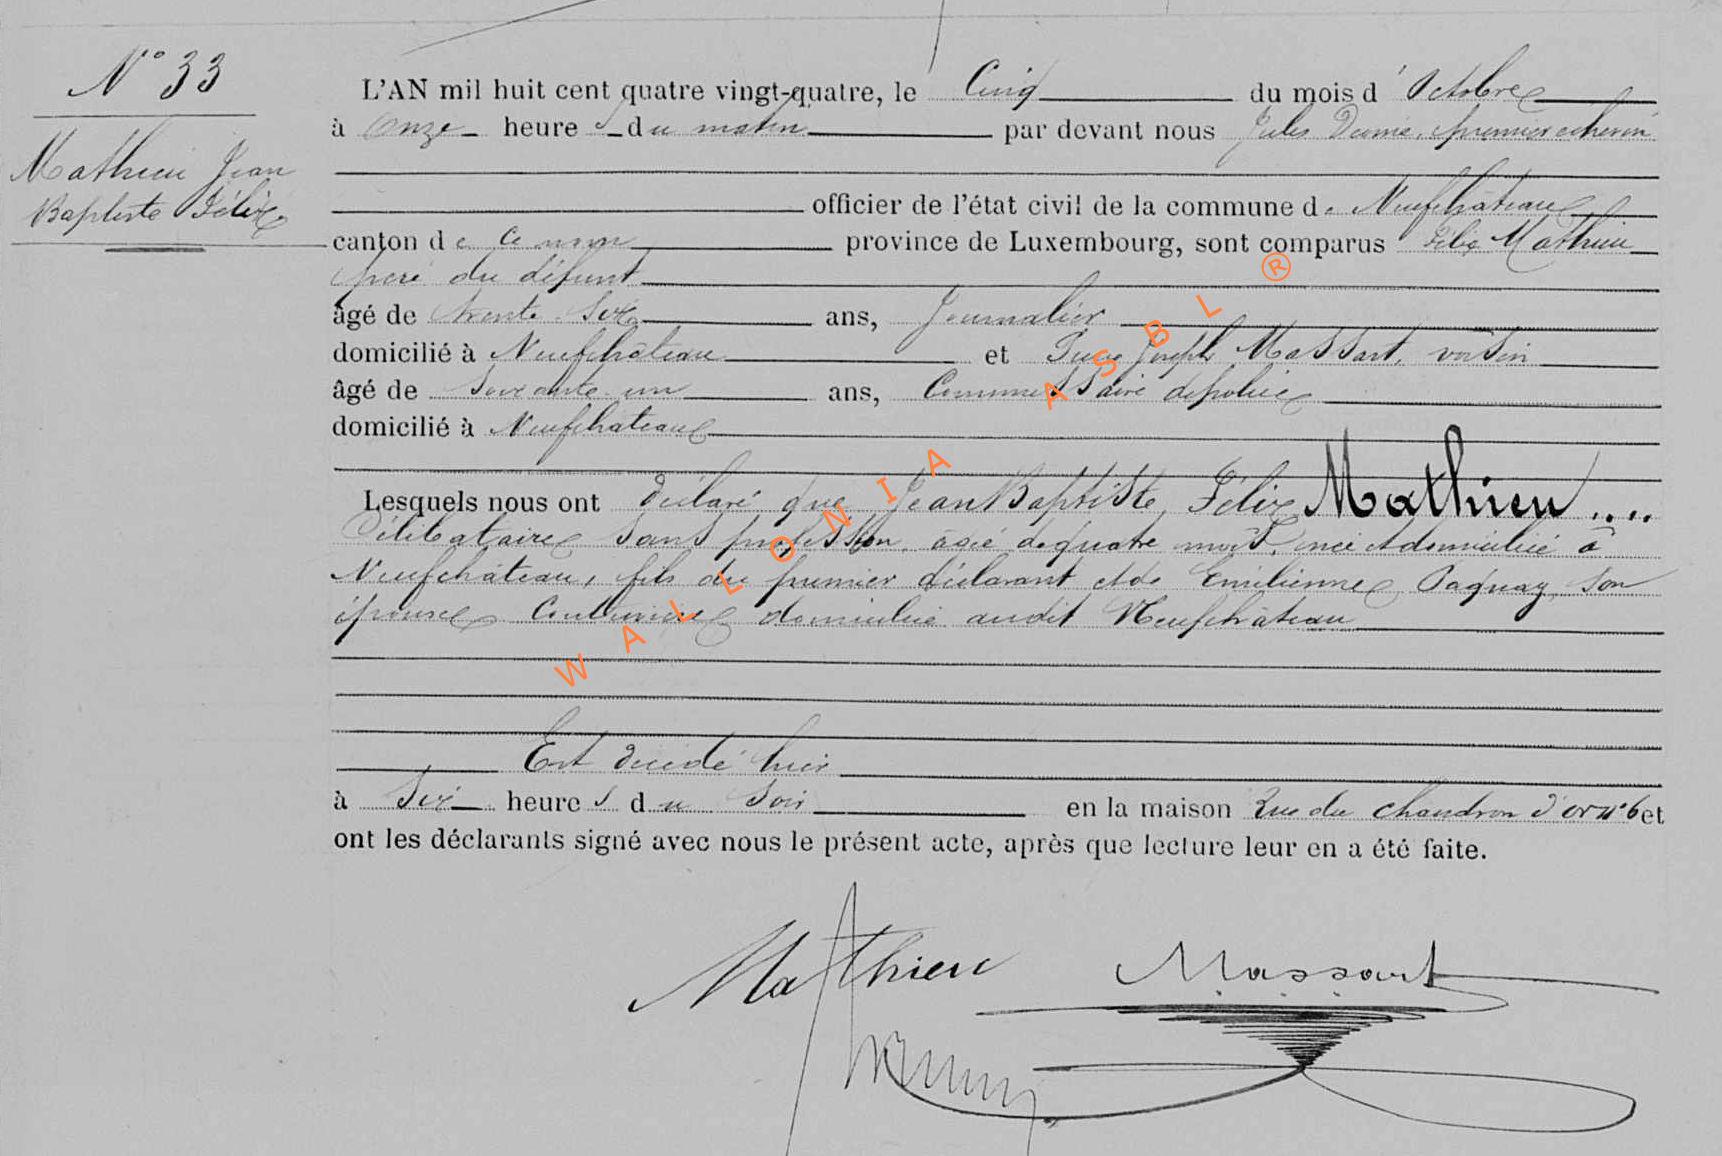 N° 33
Mathieu Jean
Baptiste Félix
L'AN mil huit cent quatre vingt-quatre, le Cinq du mois d'Octobre
à Onze heures du matin par devant nous Jules premier échevin
officier de l'état civil de la commune de Neufchâteau
canton de ce nom province de Luxembourg, sont comparus Félix Mathieu
père du défunt
âgé de trente six ans, Journalier
domicilié à Neufchâteau et Joseph Massart, voisin
âgé de soixante un ans, Commissaire de police
domicilié à Neufchateau
Lesquels nous ont déclaré que Jean Baptiste Félix Mathieu ....
Célibataire sans profession, âgé de quatre mois, né et domicilié à
Neufchâteau, fils du premier déclarant et de Emilienne Paquay, son
épouse Couturière domiciliée audit Neufchâteau
Est décédé hier
à Six heures du Soir en la maison Rue du chaudron d'or n° 6 et
ont les déclarants signé avec nous le présent acte, après que lecture leur en a été faite.
Mathieu Massart
WALLONIA ASBL ®